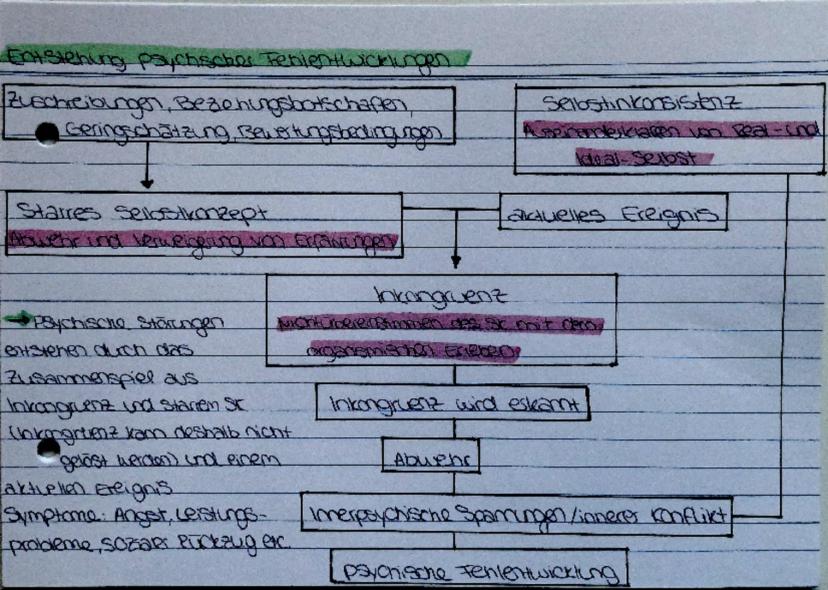 Entstehung psychischer Fehlentwicklungen
Zuschreibungen, Beziehungsbotschaften,
Geringschätzung, Bewertungsbedingungen
Selbstinkonsistenz
Auseinanderklaffen von Real- und
Ideal-Selbst
Starres Selbstkonzept
Abwehr und Verweigerung von Erfahrungen
aktuelles Ereignis
Inkongruenz
Nichtübereinstimmen des SK mit dem
organismischen Erleben
→ Psychische Störungen
entstehen durch das
Zusammenspiel aus
Inkongruenz und starrem SK
(Inkongruenz kann deshalb nicht
gelöst werden) und einem
aktuellen Ereignis
Symptome: Angst, Leistungs-
probleme, sozialer Rückzug etc.
Inkongruenz wird erkannt
Abwehr
Innerpsychische Spannungen/innerer Konflikt
psychische Fehlentwicklung